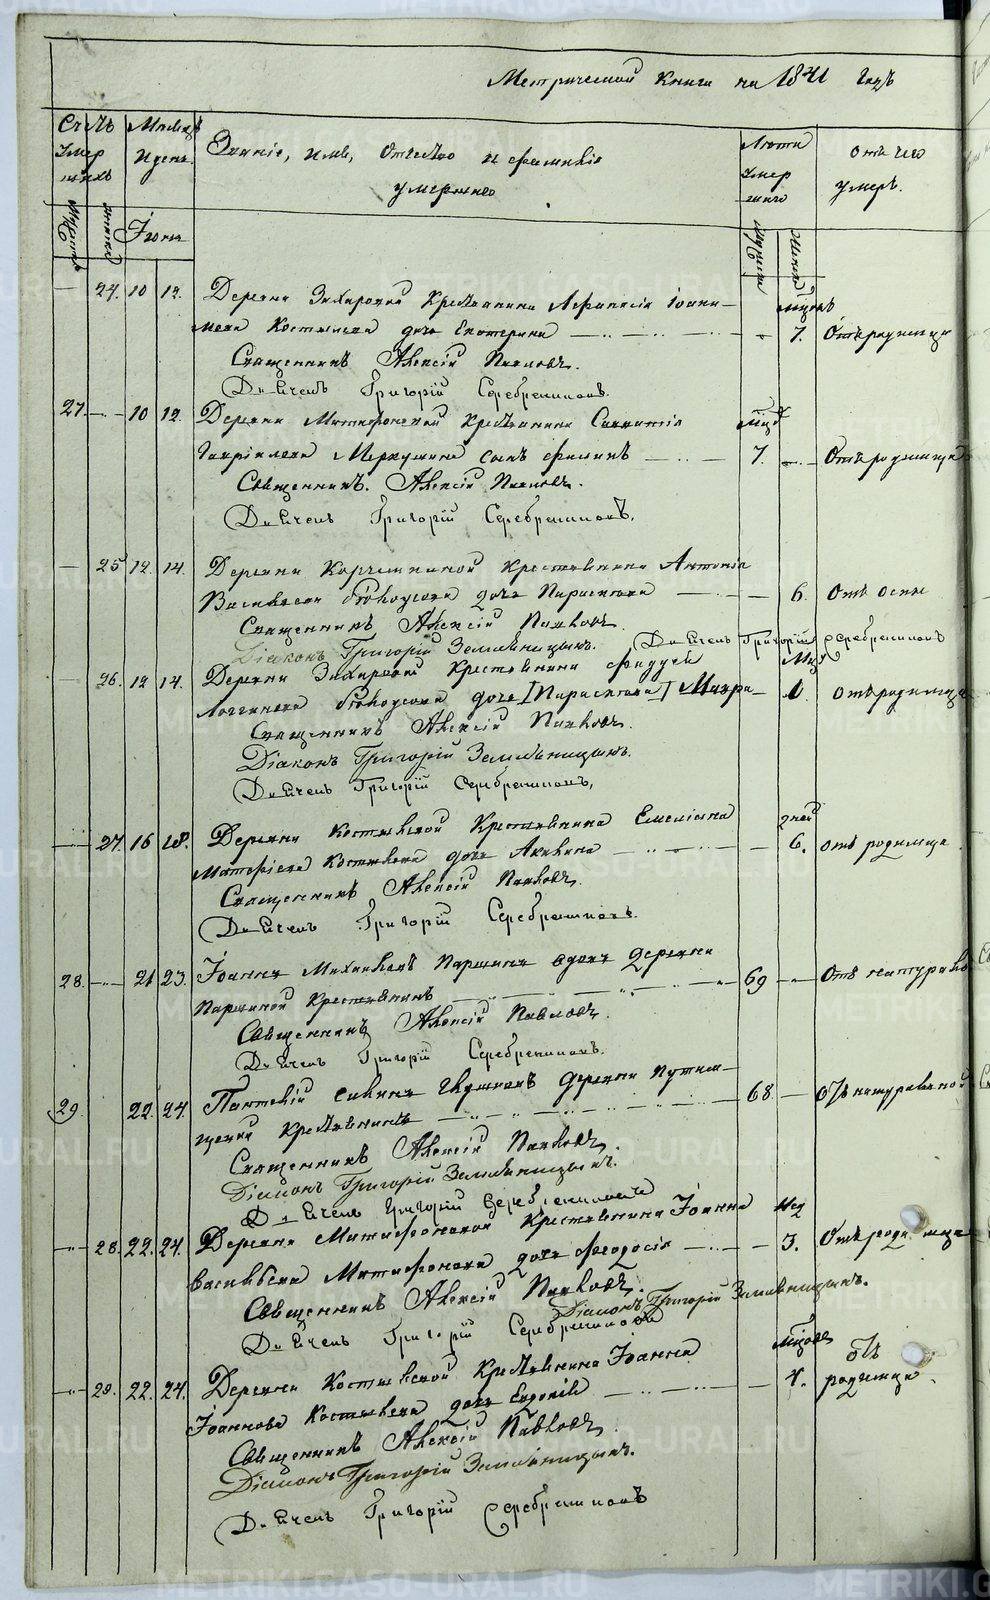 Метрической книги на 1841 годъ
Счетъ умершихъ
Мѣсяцъ и день
Званіе, имя, отчество и фамилія умершаго
Лѣта умершаго
отъ чего умеръ.
Іюня
24. 10 12. Деревни Захаровой крестьянина Афанасія Іоанно-
мѣсяцовъ
ва Костылева дочь Екатерина 7. Отъ родимца
Священникъ Алексій Павловъ.
Дьячекъ Григорій Серебренниковъ.
27. 10 12. Деревни Митрофановой крестьянина Савватія
Гаврилова Меркушина сынъ 7. Отъ родимца
Священникъ. Алексій Павловъ.
Дьячекъ Григорій Серебренниковъ.
25 12. 14. Деревни крестьянина Антонія
Васильева дочь Параскева 6. Отъ оспы
Священникъ Алексій Павловъ.
Діаконъ Григорій Земляницынъ. Дьячекъ Григорій Серебренниковъ
26. 12 14. Деревни Захаровой крестьянина
Логгинова дочь [Параскева] Мавра 1. отъ родимца
Священникъ Алексій Павловъ.
Діаконъ Григорій Земляницынъ.
Дьячекъ Григорій Серебренниковъ.
27. 16 18. Деревни Костылевой крестьянина Емеліана
дней
Матфіева Костылева дочь Акилина 6. отъ родимца
Священникъ Алексій Павловъ.
Дьячекъ Григорій Серебренниковъ.
28. 21 23. Іоаннъ Михайловъ Паршинъ вдовъ деревни
Паршиной крестьянинъ 69 Отъ натуральн
Священникъ Алексій Павловъ.
Дьячекъ Григорій Серебренниковъ.
29. 22. 24. Савинъ деревни
крестьянинъ 68. Отъ натуральной
Священникъ Алексій Павловъ.
Діаконъ Григорій Земляницынъ.
Дьячекъ Григорій Серебренниковъ
28. 22. 24. Деревни Митрофановой крестьянина Іоанна
нед
Васильева Митрофанова дочь Феодосія 3. Отъ родимца
Священникъ Алексій Павловъ. Діаконъ Григорій Земляницынъ.
Дьячекъ Григорій Серебренниковъ
29. 22. 24. Деревни Костылевой крестьянина Іоанна
Іоаннова Костылева дочь Евдокія отъ родимца.
Священникъ Алексій Павловъ
Діаконъ Григорій Земляницынъ.
Дьячекъ Григорій Серебренниковъ
METRIKI.GASO-URAL.RU